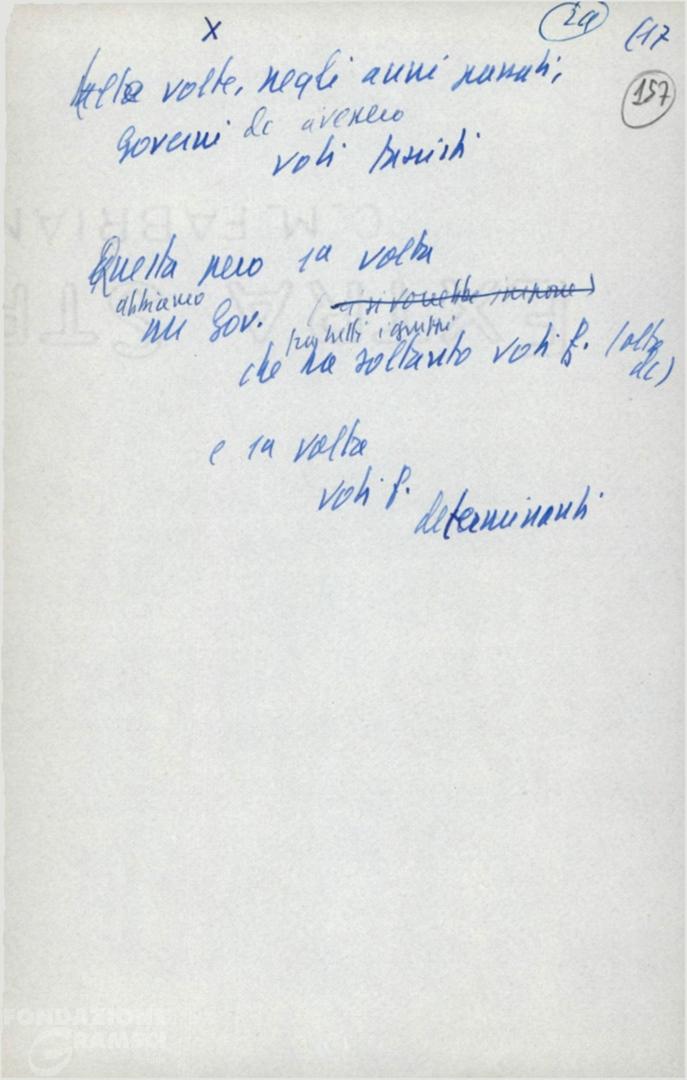 X
2a
(17
157
Altre volte, negli anni passati,
Governi dc avevano
voti fascisti
Questa però 1a volta
abbiamo
un Gov. (
tra tutti i gruppi
che ha soltanto voti f. (oltre
dc)
e 1a volta
voti f.
determinanti
FONDAZIONE
GRAMSCI